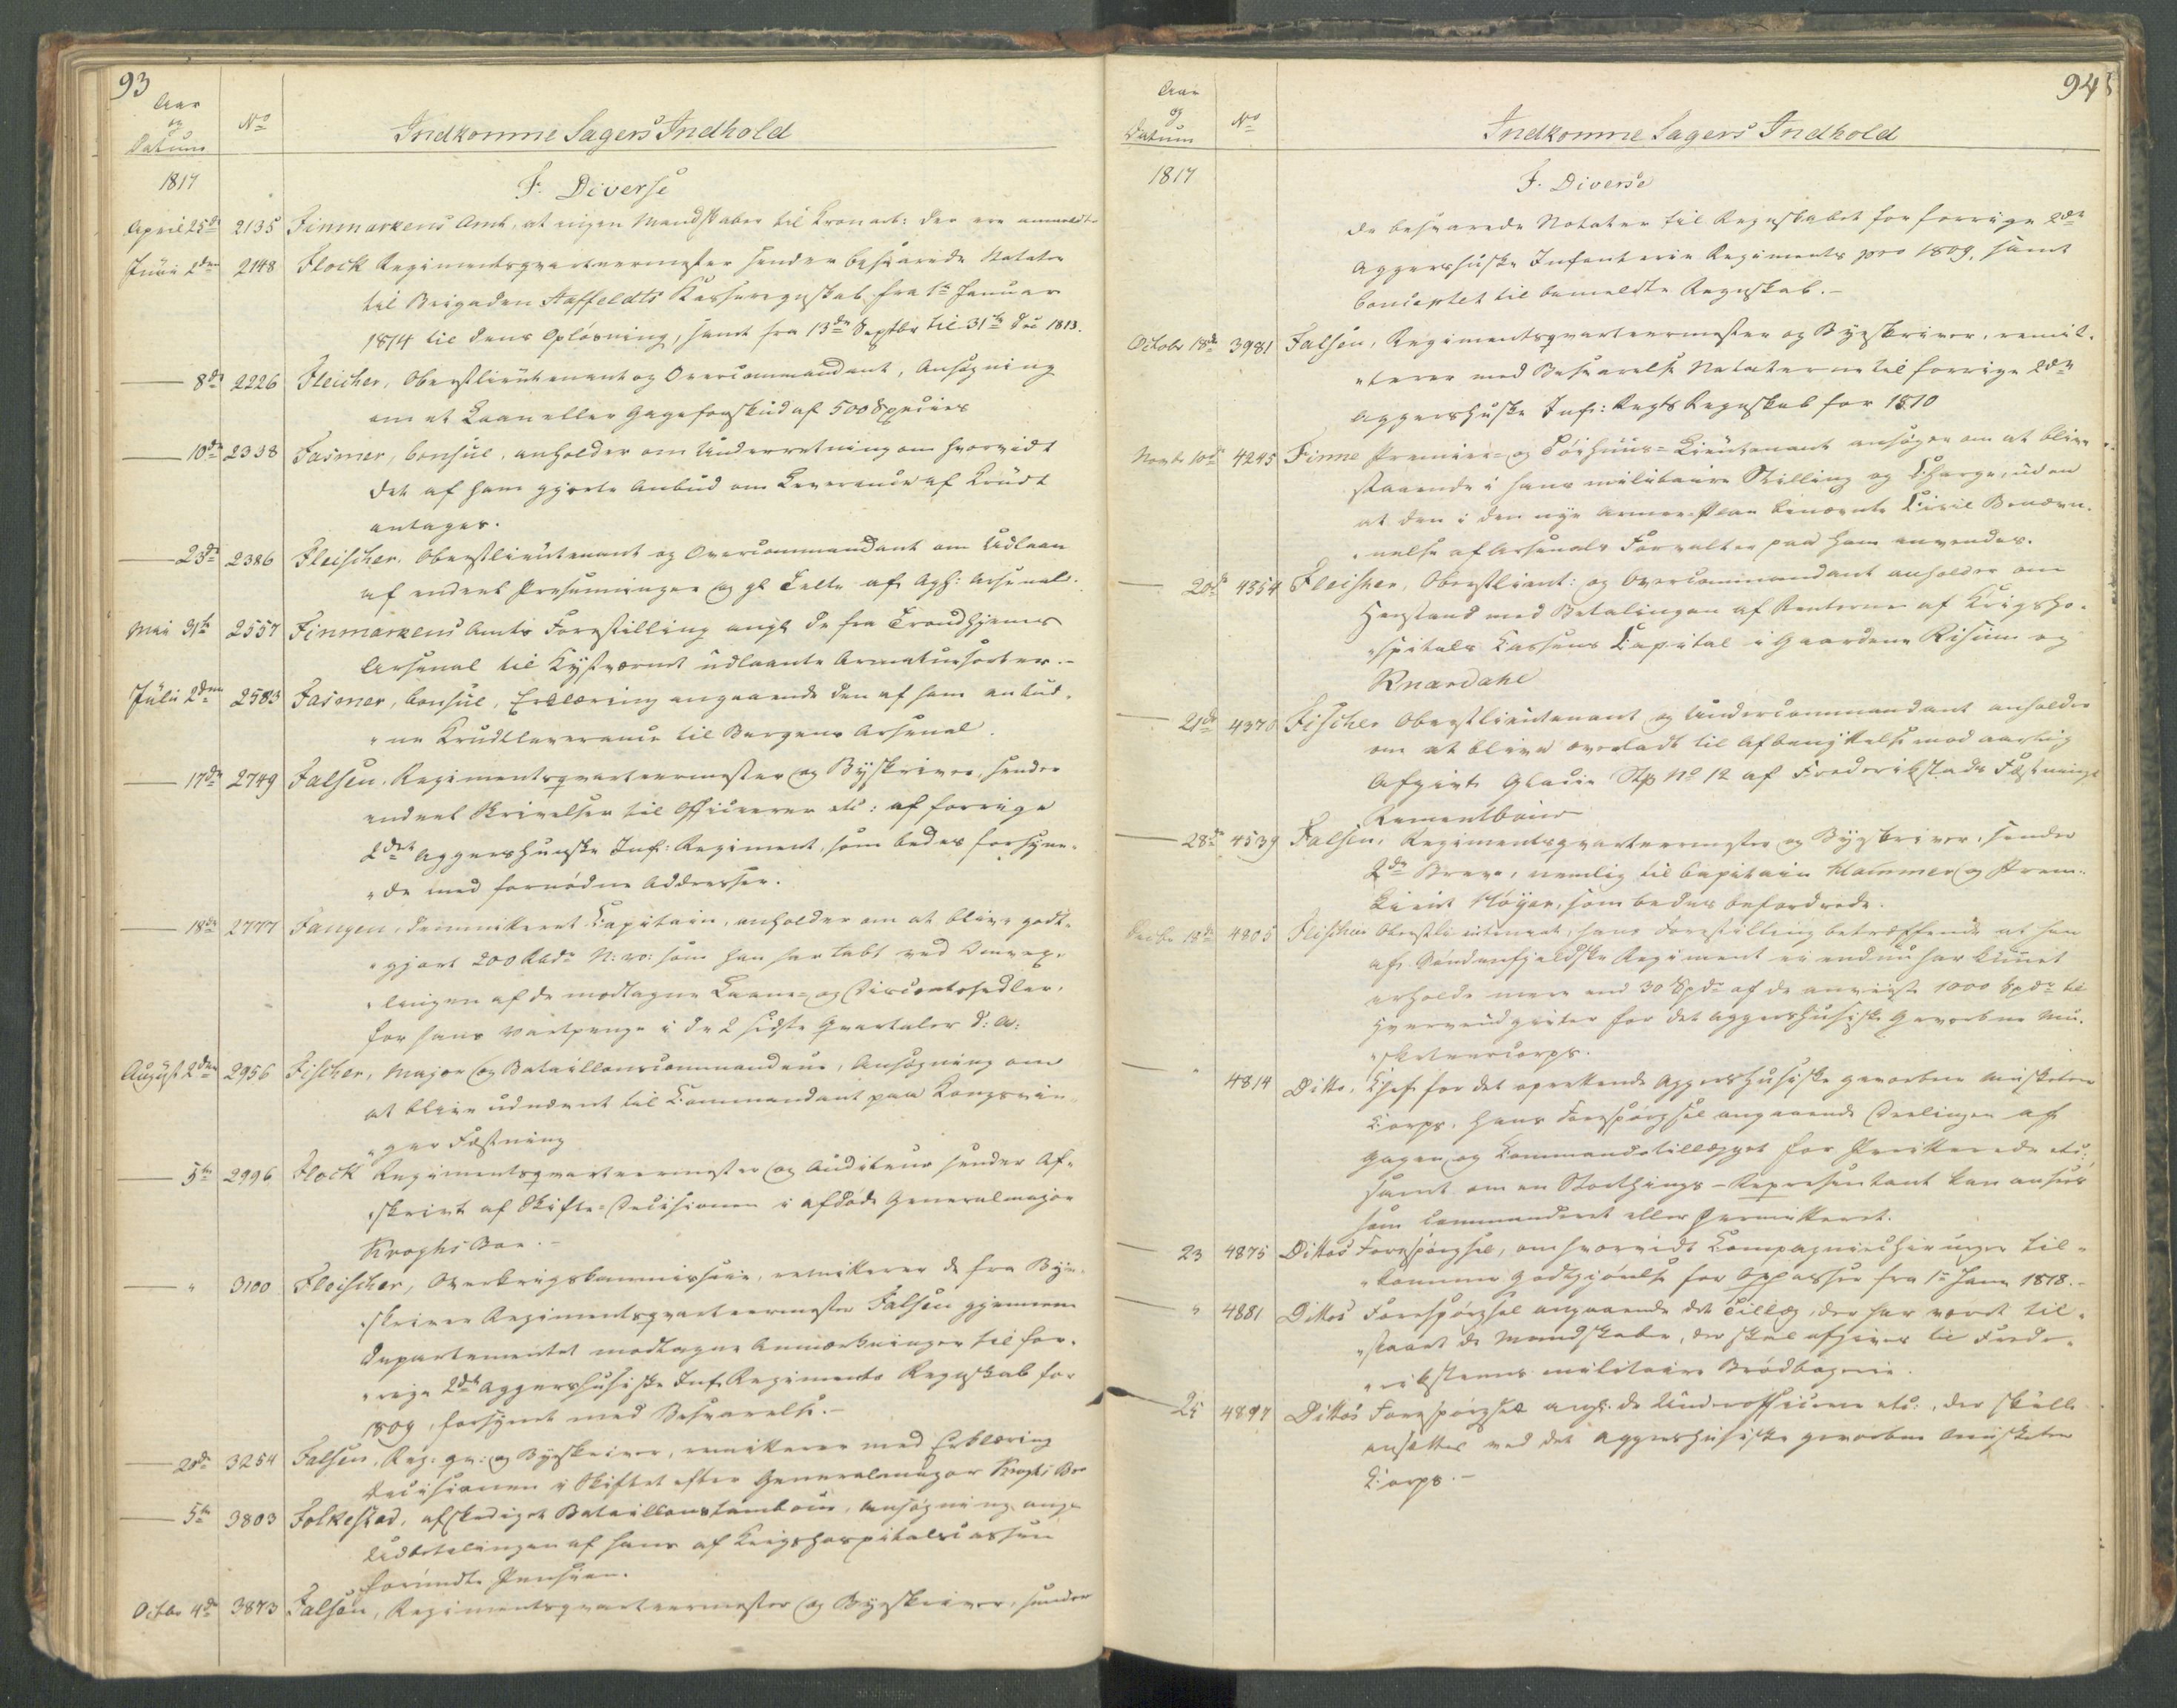 93
Aar
og
Datum
No
Indkomne Sagers Indhold
1817
F. Diverse
April 25de 2135 Finmarkens Amt, at ingen Mandskaber til Cronarb: der ere anmeldte
Juni 2den 2148 Flock Regimentsqvarteermester sender besvarede Notater
til Brigaden Staffeldts Casseregnskab fra 1te Januar
1814 til dens Opløsning, samt fra 13de Septbr til 31te Dec 1813.
— 8de 2226 Fleicher, Oberstlieutenant og Overcommandant, Ansøgning
om et Laan eller Gageforskud af 500 Species
— 10de 2338 Fasmer, Consul, anholder om Underretning om hvorvidt
det af ham gjorte Anbud om Leverence af Krudt
antages.
— 23de 2386 Fleischer, Oberstlieutenant og Overcommandant om Udlaan
af endeel Presenninger og gl Telte af Agh: Arsenal.
Mai 31te 2557 Finmarkens Amts Forestilling angl de fra Trondhjems
Arsenal til Kystværnet udlaante Armatursorter.-
Juli 2den 2583 Fasmer, Consul, Erklæring angaaende den af ham anbud-
ne Krudtleverance til Bergens Arsenal.
— 17de 2749 Falsen, Regimentsqvarteermester og Byskriver, sender
endeel Skrivelser til Officerer etc: af forrige
2det Aggershuuske Inf: Regiment, som bedes forsyne-
de med fornødne Addresser.
— 18de 2777 Fangen, dimmitteret Capitain, anholder om at blive godt-
gjort 200 Rbdr N: v: som han har tabt ved Omvex-
lingen af de modtagne Laane- og Discontosedler,
for hans Vartpenge i de 2 sidste Qvartaler d: A:
August 2den 2956 Fischer, Major og Bataillonscommandeur, Ansøgning om
at blive udnævnt til Commandant paa Kongsvin-
ger Fæstning
— 5te 2996 Flock Regimentsqvarteermester og Auditeur sender Af-
skrivt af Skifte-Decisionen i afdøde Generalmajor
Kroghs Boe.-
— " 3100 Fleischer, Overkrigskommissair, remitterer de fra By-
skriver Regimentsqvarteermester Falsen gjennem
Departementet modtagne Anmærkninger til for-
rige 2det Aggershusiske Inf. Regiments Regnskab for
1809, forsynet med Besvarelse.-
— 20de 3254 Falsen, Reg: qv: og Byeskriver, remitterer med Erklæring
Decisionen i Skiftet efter Generalmajor Kroghs Boe
— 5te 3803 Folkestad, afskediget Bataillonstambour, Ansøgning ang
Udbetalingen af hans af Krigshospitalscassen
forundte Pension.
Octbr 4de 3873 Falsen, Regimentsqvarteermester og Byeskriver, sender
94
Aar
og
Datum
No
Indkomne Sagers Indhold
1817
F. Diverse
de besvarede Notater til Regnskabet for forrige 2de
Aggershuske Infanterie Regiments pro 1809, samt
Conceptet til bemeldte Regnskab.-
Octobr 18de 3981 Falsen, Regimentsqvarteermester og Byeskriver, remit-
terer med Besvarelse Notaterne til forrige 2de
Aggershuske Inf: Regts Regnskab for 1810
Novbr 10de 4245 Finne Premier- og Tøihuus-Lieutenant ansøger om at blive
staaende i hans militaire Stilling og Charge, uden
at den i den nye Armee-Plan benævnte Civil Benævn-
nelse af Arsenals Forvalter paa ham anvendes.
— 20de 4354 Fleischer, Oberstlieut: og Overcommandant anholder om
Henstand med Betalingen af Renterne af Krigsho-
spitals Cassens Capital i Gaardene Risum og
Knardahl
— 21de 4370 Fischer Oberstlieutenant og Undercommandant anholder
om at blive overladt til Afbenyttelse mod aarlig
Afgivt Glacie Stk No 12 af Frederikstads Fæstnings
— 28de 4539 Falsen, Regimentsqvarteermester og Byeskriver, sender
2de Breve, nemlig til Capitain Hammer og Prem-
Lieut Høyer, som bedes befordrede.
Decbr 18de 4805 Flischer Oberstlieutenant, hans Forestilling betræffende at han
af Søndenfjeldske Regiment ei endnu har kunnet
erholde mere end 30 Spdr af de anviste 1000 Spdr til
for det Aggershusiske Gevorbne Mu-
sketeercorps.
— " 4814 Ditto, Chef for det oprettende Aggershusiske gevorbne Musketeer
Corps. hans Forespørgsel angaaende Deelingen af
Gagen og Commandotillægget for Permitterede etc.
samt om en Storthings-Representant kan ansees
som commanderet eller Permitteret.
— 23 4875 Dittos Forespørgsel, om hvorvidt Compagniechirurger til-
komme Godtgjørelse for Oppasser fra 1te Janr 1818.-
— " 4881 Dittos Forespørgsel angaaende det Tillæg, der har været til-
staaet de Mandskaber, der skal afgives til Frede-
rikstens militaire Brødbagerie.
— 24 4897 Dittos Forespørgsel angl. de Underofficerer etc., der skulle
ansættes ved det Aggershusiske gevorbne Musketeer
Corps.-